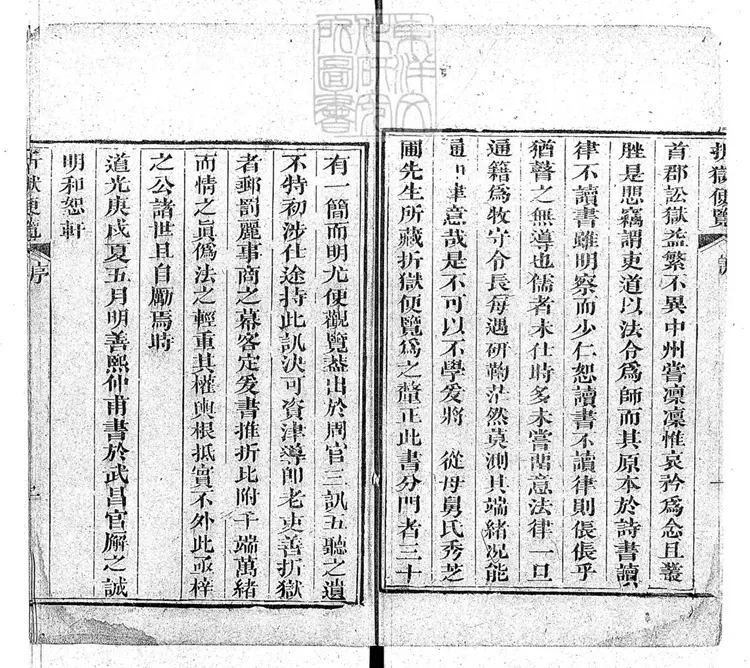 折獄便覽
序
首郡訟獄益繁不異中州嘗凜凜惟哀矜爲念且叢
脞是思竊謂吏道以法令爲師而其原本於詩書讀
律不讀書雖明察而少仁恕讀書不讀律則倀倀乎
猶瞽之無導也儒者未仕時多未嘗留意法律一旦
通籍爲牧守令長每遇研鞫茫然莫測其端緒況能
通 律意哉是不可以不學爰將 從母舅氏秀芝
圃先生所藏折獄便覽爲之釐正此書分門者三十
有一簡而明尤便觀覽葢出於周官三訊五聽之遺
不特初涉仕途持此訊決可資津導卽老吏善折獄
者郵罰麗事商之幕客定爰書推折比附千端萬緖
而情之眞僞法之輕重其權輿根抵實不外此亟梓
之公諸世且自勵焉時
道光庚戌夏五月明善熙仲甫書於武昌官廨之誠
明和恕軒
折獄便覽
序
東洋文化研究所圖書